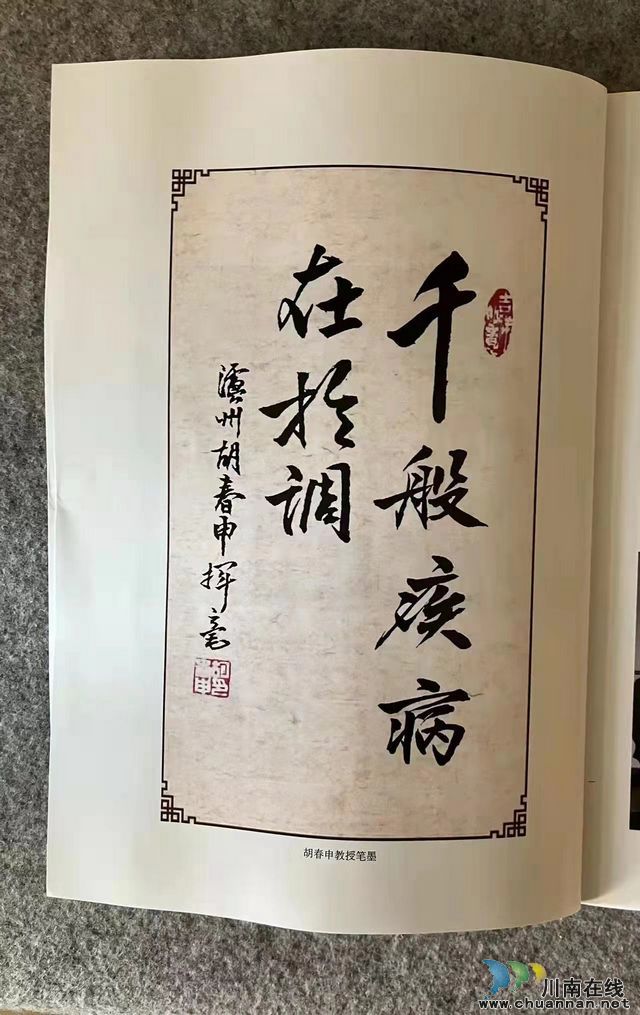 千般疾病
在於调
泸州胡春申挥毫
胡春申教授笔墨
川南在线
www.chuannan.net